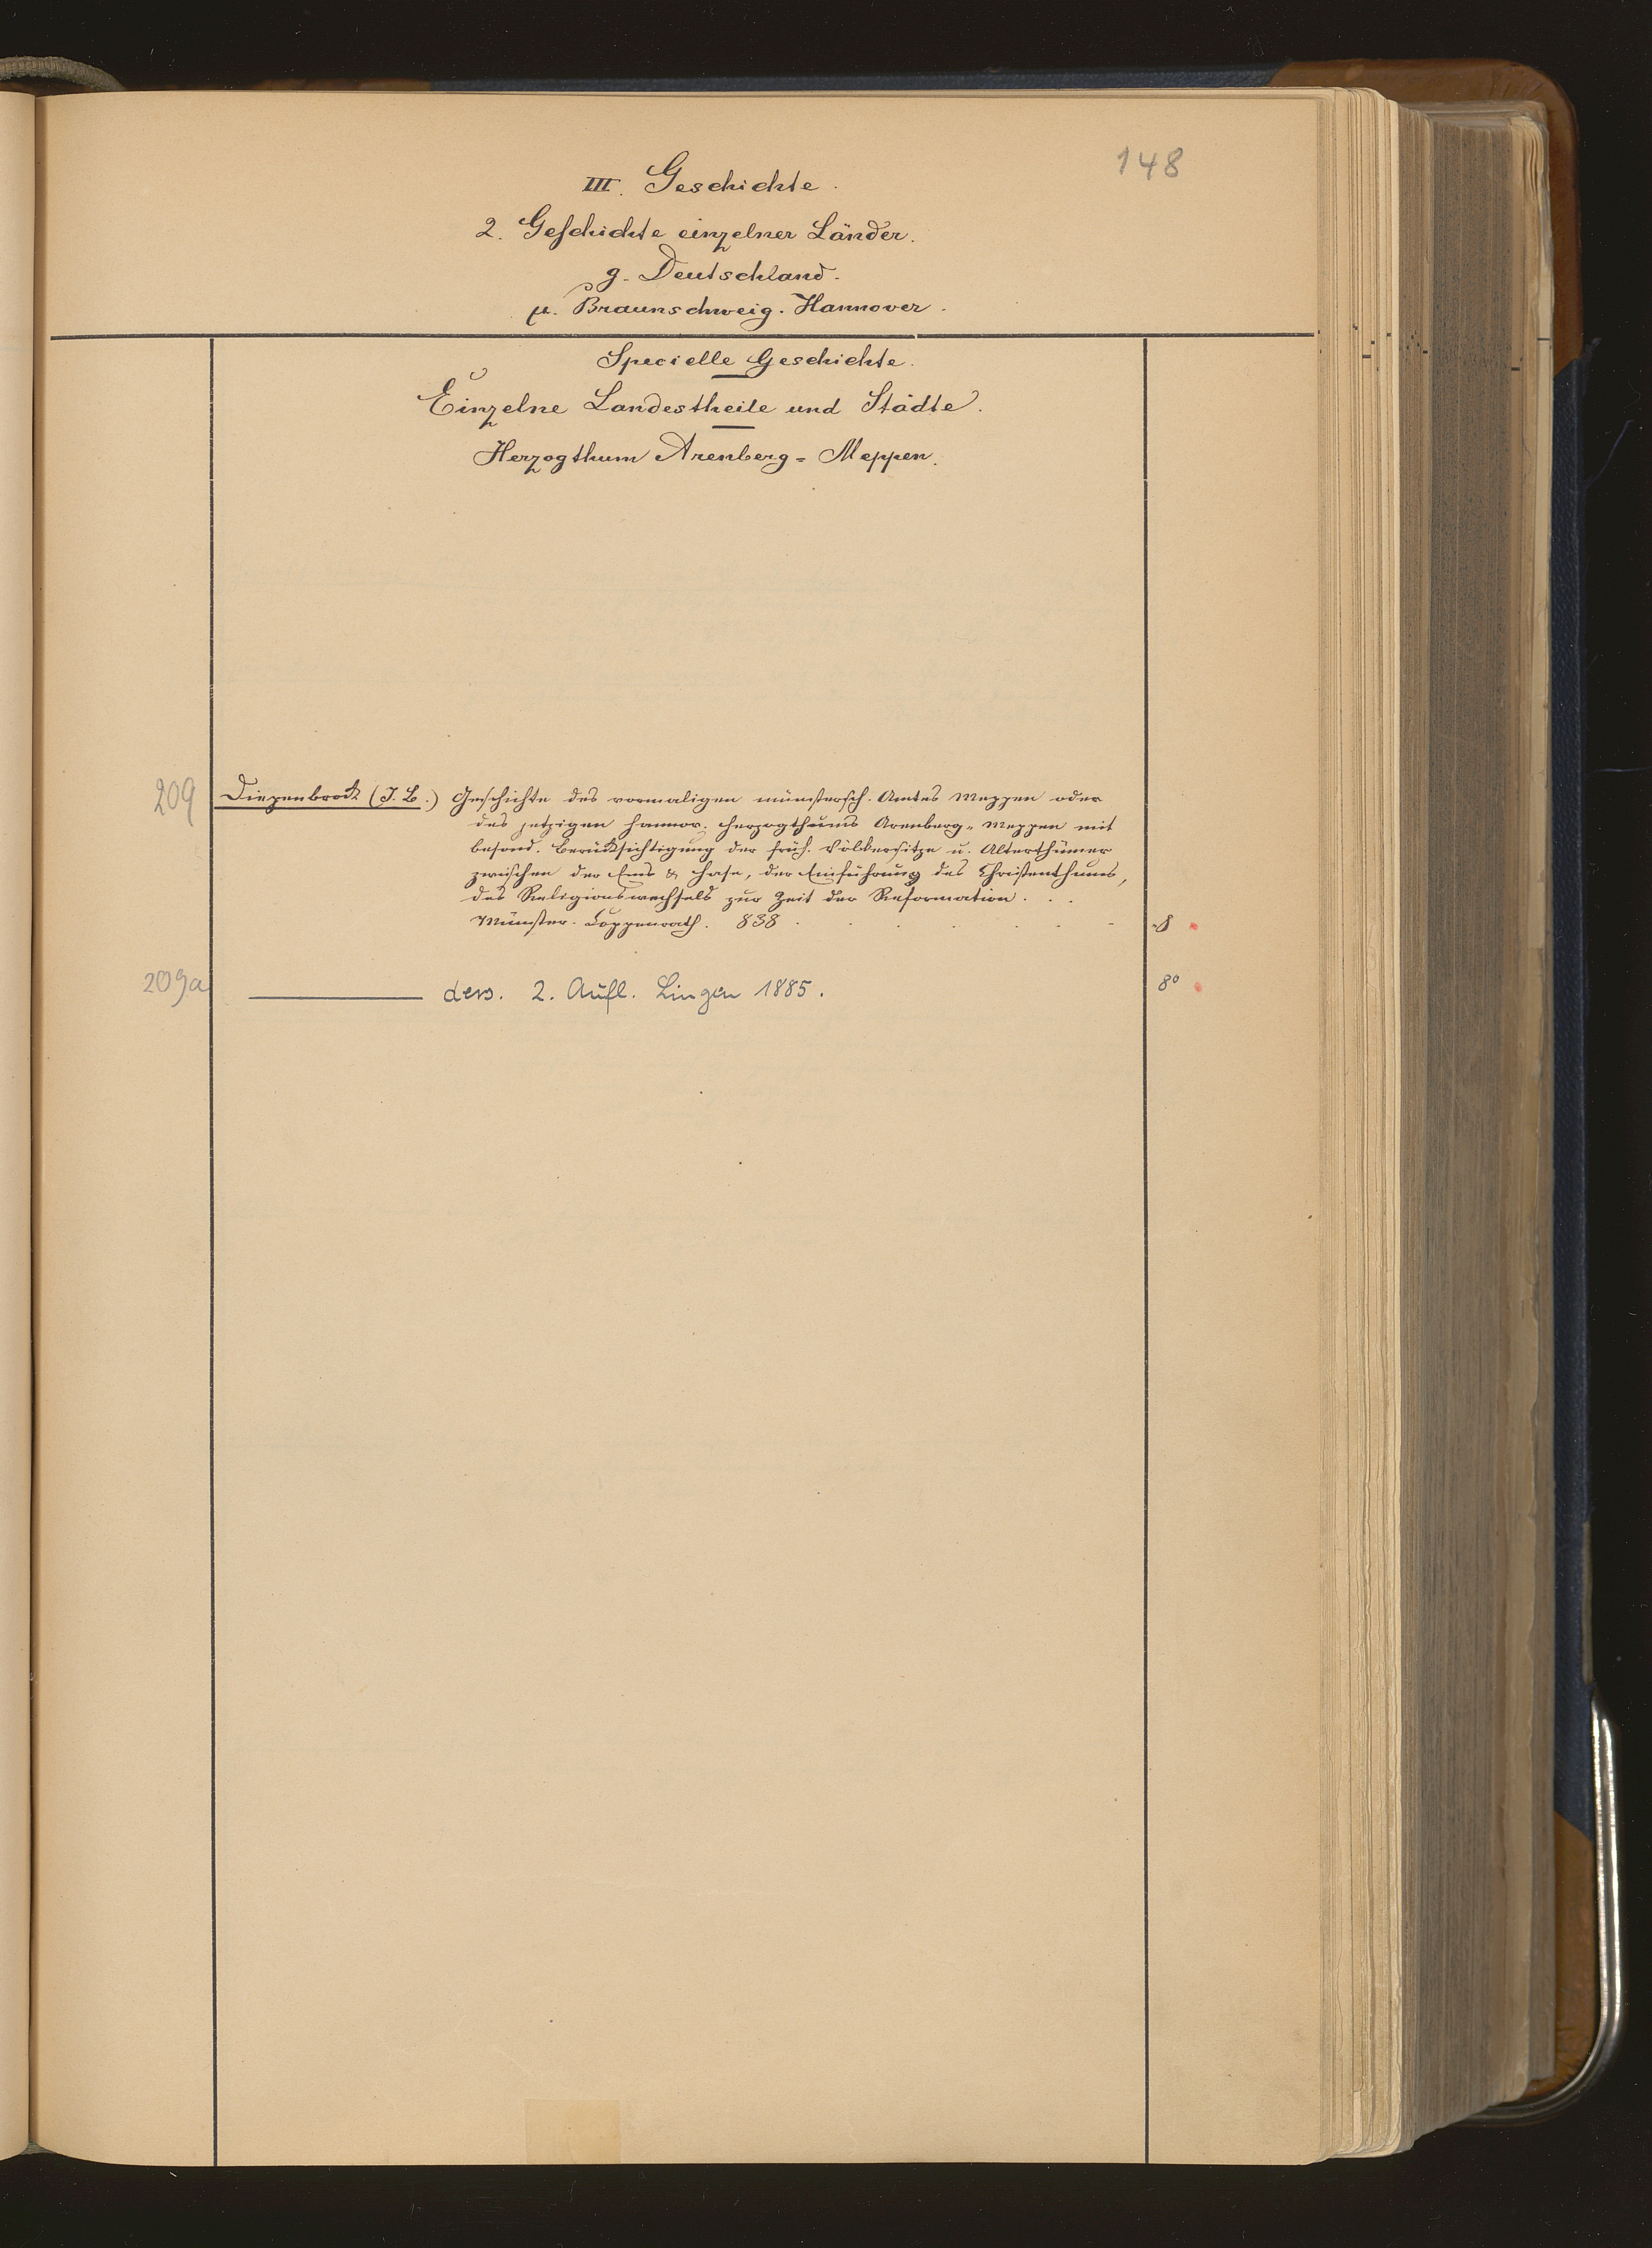 148
III. Geschichte.
2. Geschichte einzelner Länder.
g. Deutschland.
μ. Braunschweig. Hannover.
Specielle Geschichte.
Einzelne Landestheile und Städte.
Herzogthum Arenberg=Meppen.
209 Diepenbrock (J. B.) Geschichte des vormaligen münstersch. Amtes Meppen oder
des jetzigen hannov. Herzogthums Arenberg-Meppen mit
besond. Berücksichtigung der früh. Völkersitze u. Alterthümer
zwischen der Ems & Hase, der Einführung des Christenthums,
des Religionswechsels zur Zeit der Reformation. . .
Münster. Coppenrath. 838 . . . . . . - 8
209a ——— dass. 2. Aufl. Lingen 1885. 8°